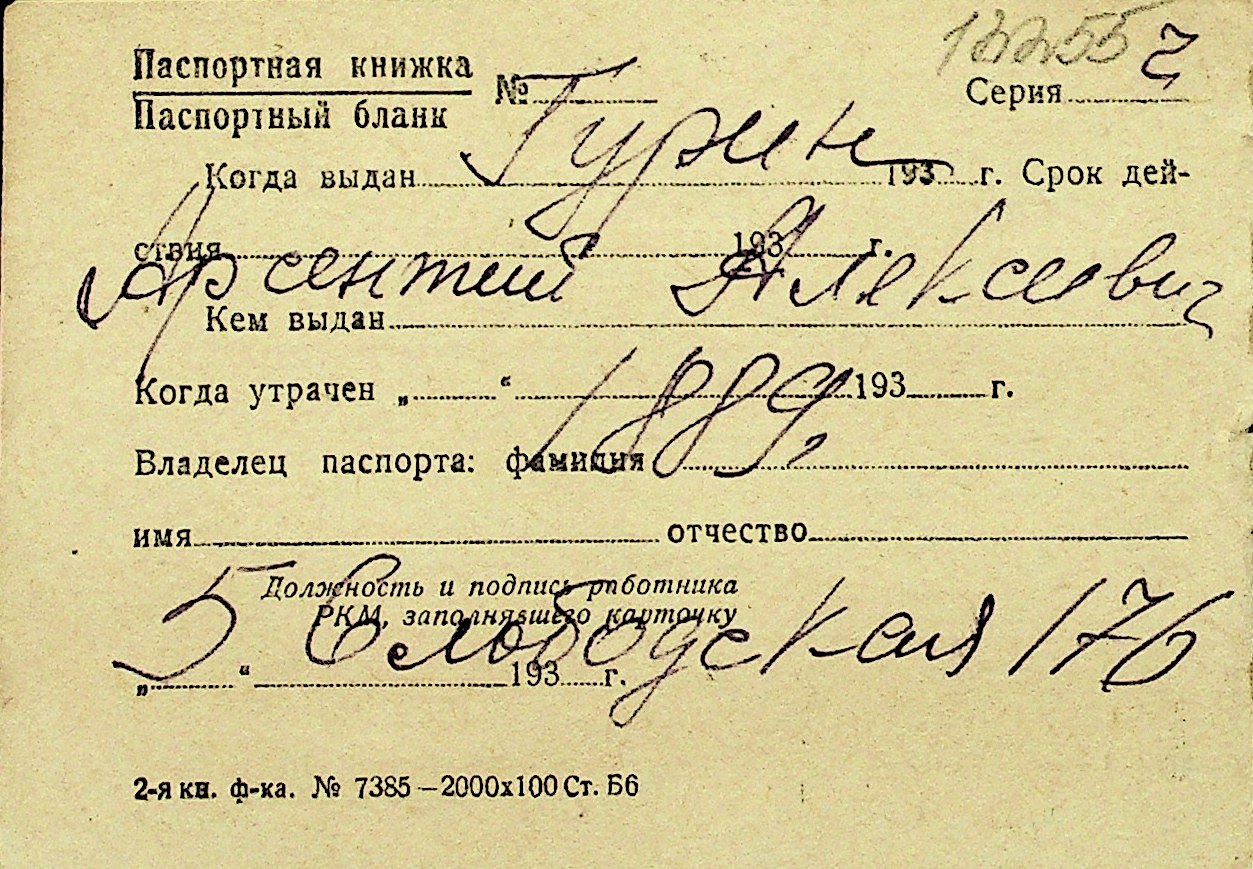 132255 ч
Паспортная книжка
Паспортный бланк
№ Серия
Гурин
Когда выдан 193 г. Срок дей-
ствия 193 г.
Арсентий Алексеевич
Кем выдан
1889,
Когда утрачен „ “ 193 г.
Владелец паспорта: фамилия
имя отчество
Должность и подпись работника
РКМ, заполнявшего карточку
Б. Слободская 176
„ “ 193 г.
2-я кн. ф-ка. № 7385—2000х100 Ст. Б6